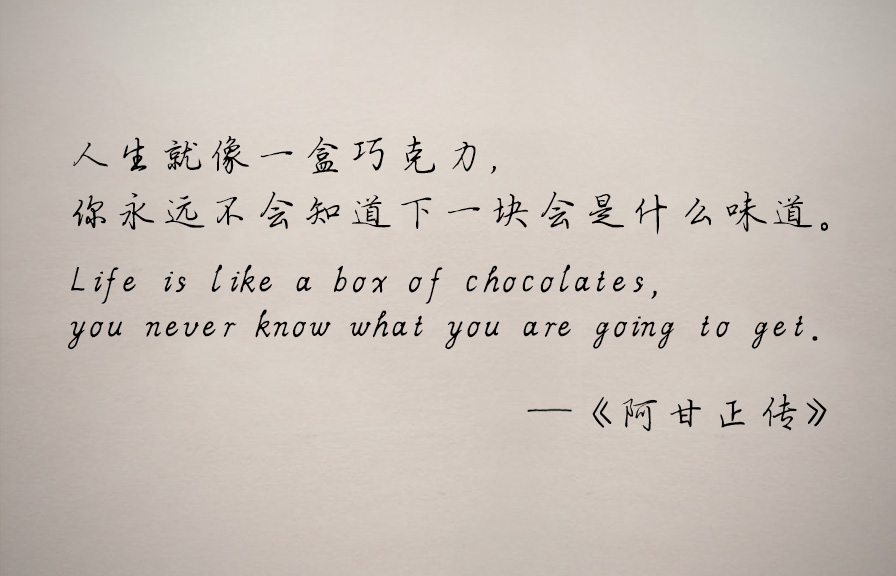 人生就像一盒巧克力,
你永远不会知道下一块会是什么味道。
Life is like a box of chocolates,
you never know what you are going to get.
—《阿甘正传》